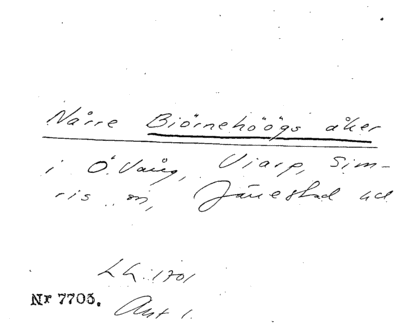 Nårre Biörnehöögs åker
i Ö. Vång, Viarp, Sim-
ris sn, Järrestad hd
LL. 1701
Nr 7703. Akt 1.